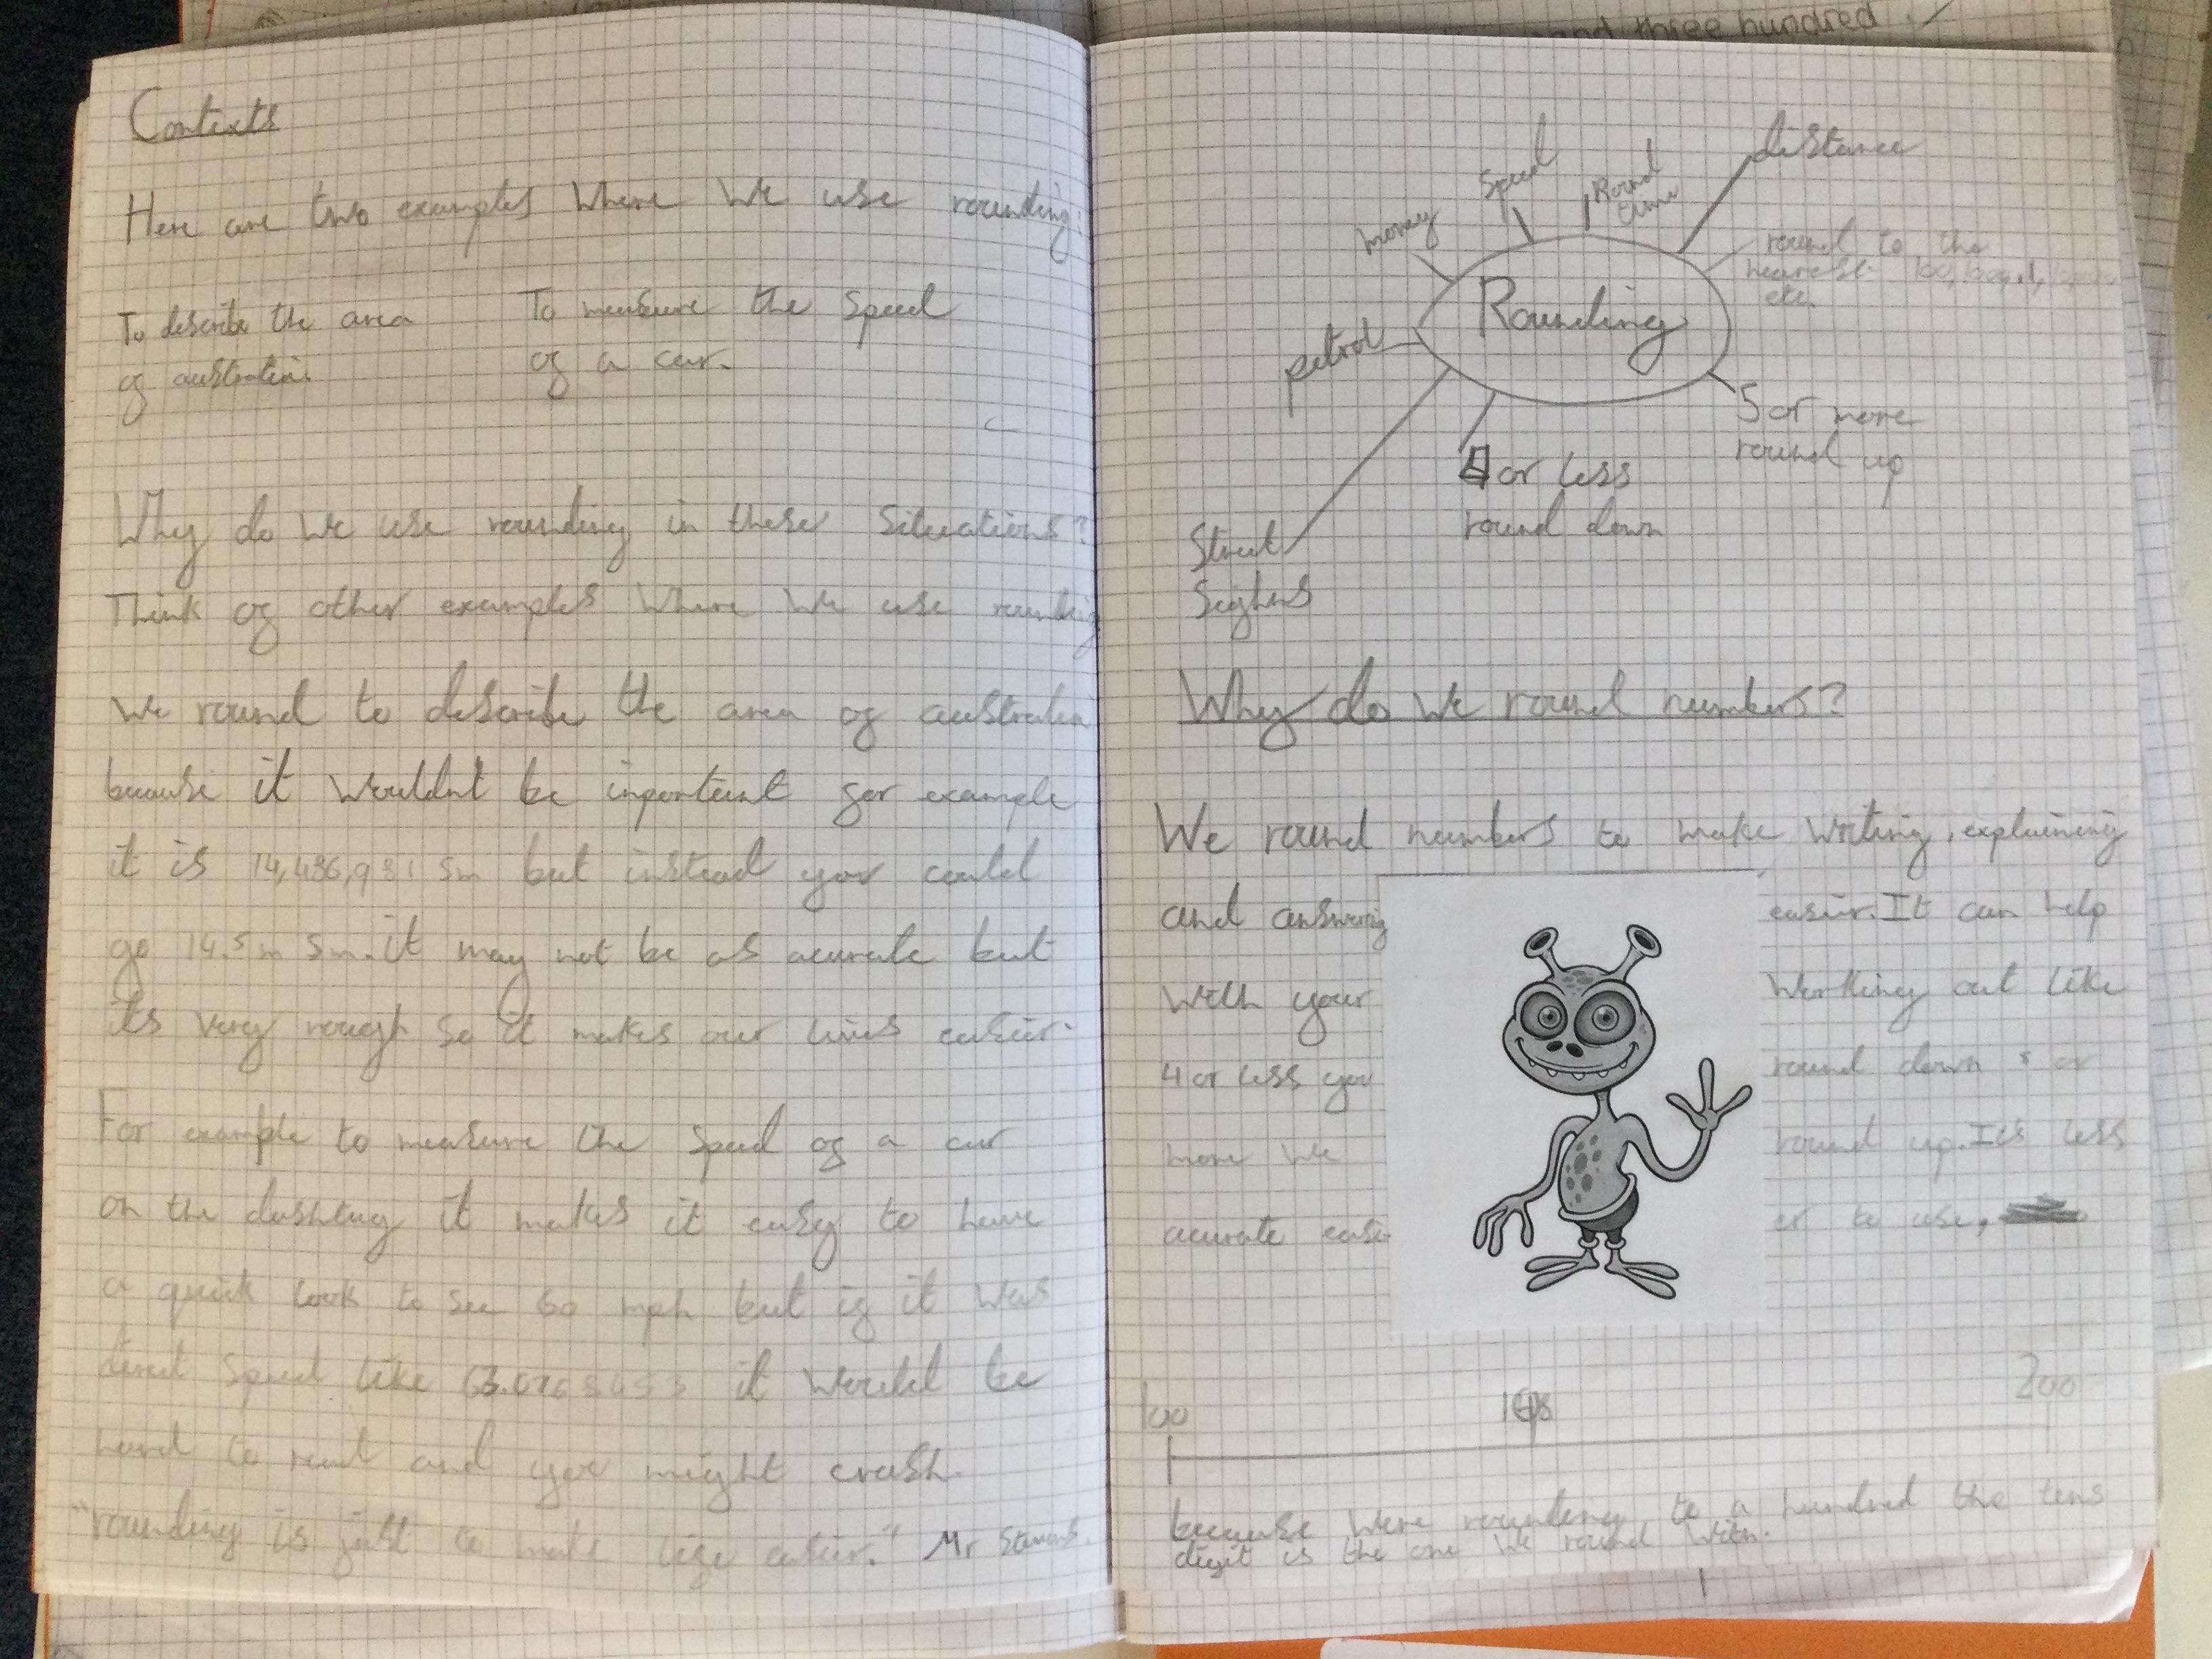 and three hundred
Contexts
Here are two examples Where We use rounding:
To describe the area
of australia.
To measure the Speed
of a car.
Why do We use rounding in these Situations?
Think of other examples Where We use rounding
We round to describe the area of australia
because it Wouldnt be inportant for example
it is 14,486,931 Sm but instead you could
go 14.5 m Sm. it may not be as acurate but
its very rough So it makes our lives easier.
For example to measure the Speed of a car
on the it makes it easy to have
a quick look to See 60 mph but if it Was
Speed like it Would be
hard to and you might crash.
"rounding is just to make life easier." Mr
distance
Round
time
Speed
money
petrol
Street
Seighns
Rounding
round to the
nearest
etc.
5 or more
round up
4 or less
round down
Why do We round numbers?
We round numbers to make Writing, explaining
and answering easier. It can help
With your Working out like
4 or less you round down 5 or
more We round up. Its less
acurate easier to use,
100
200
because Were rounding to a hundred the tens
digit is the one We round With.